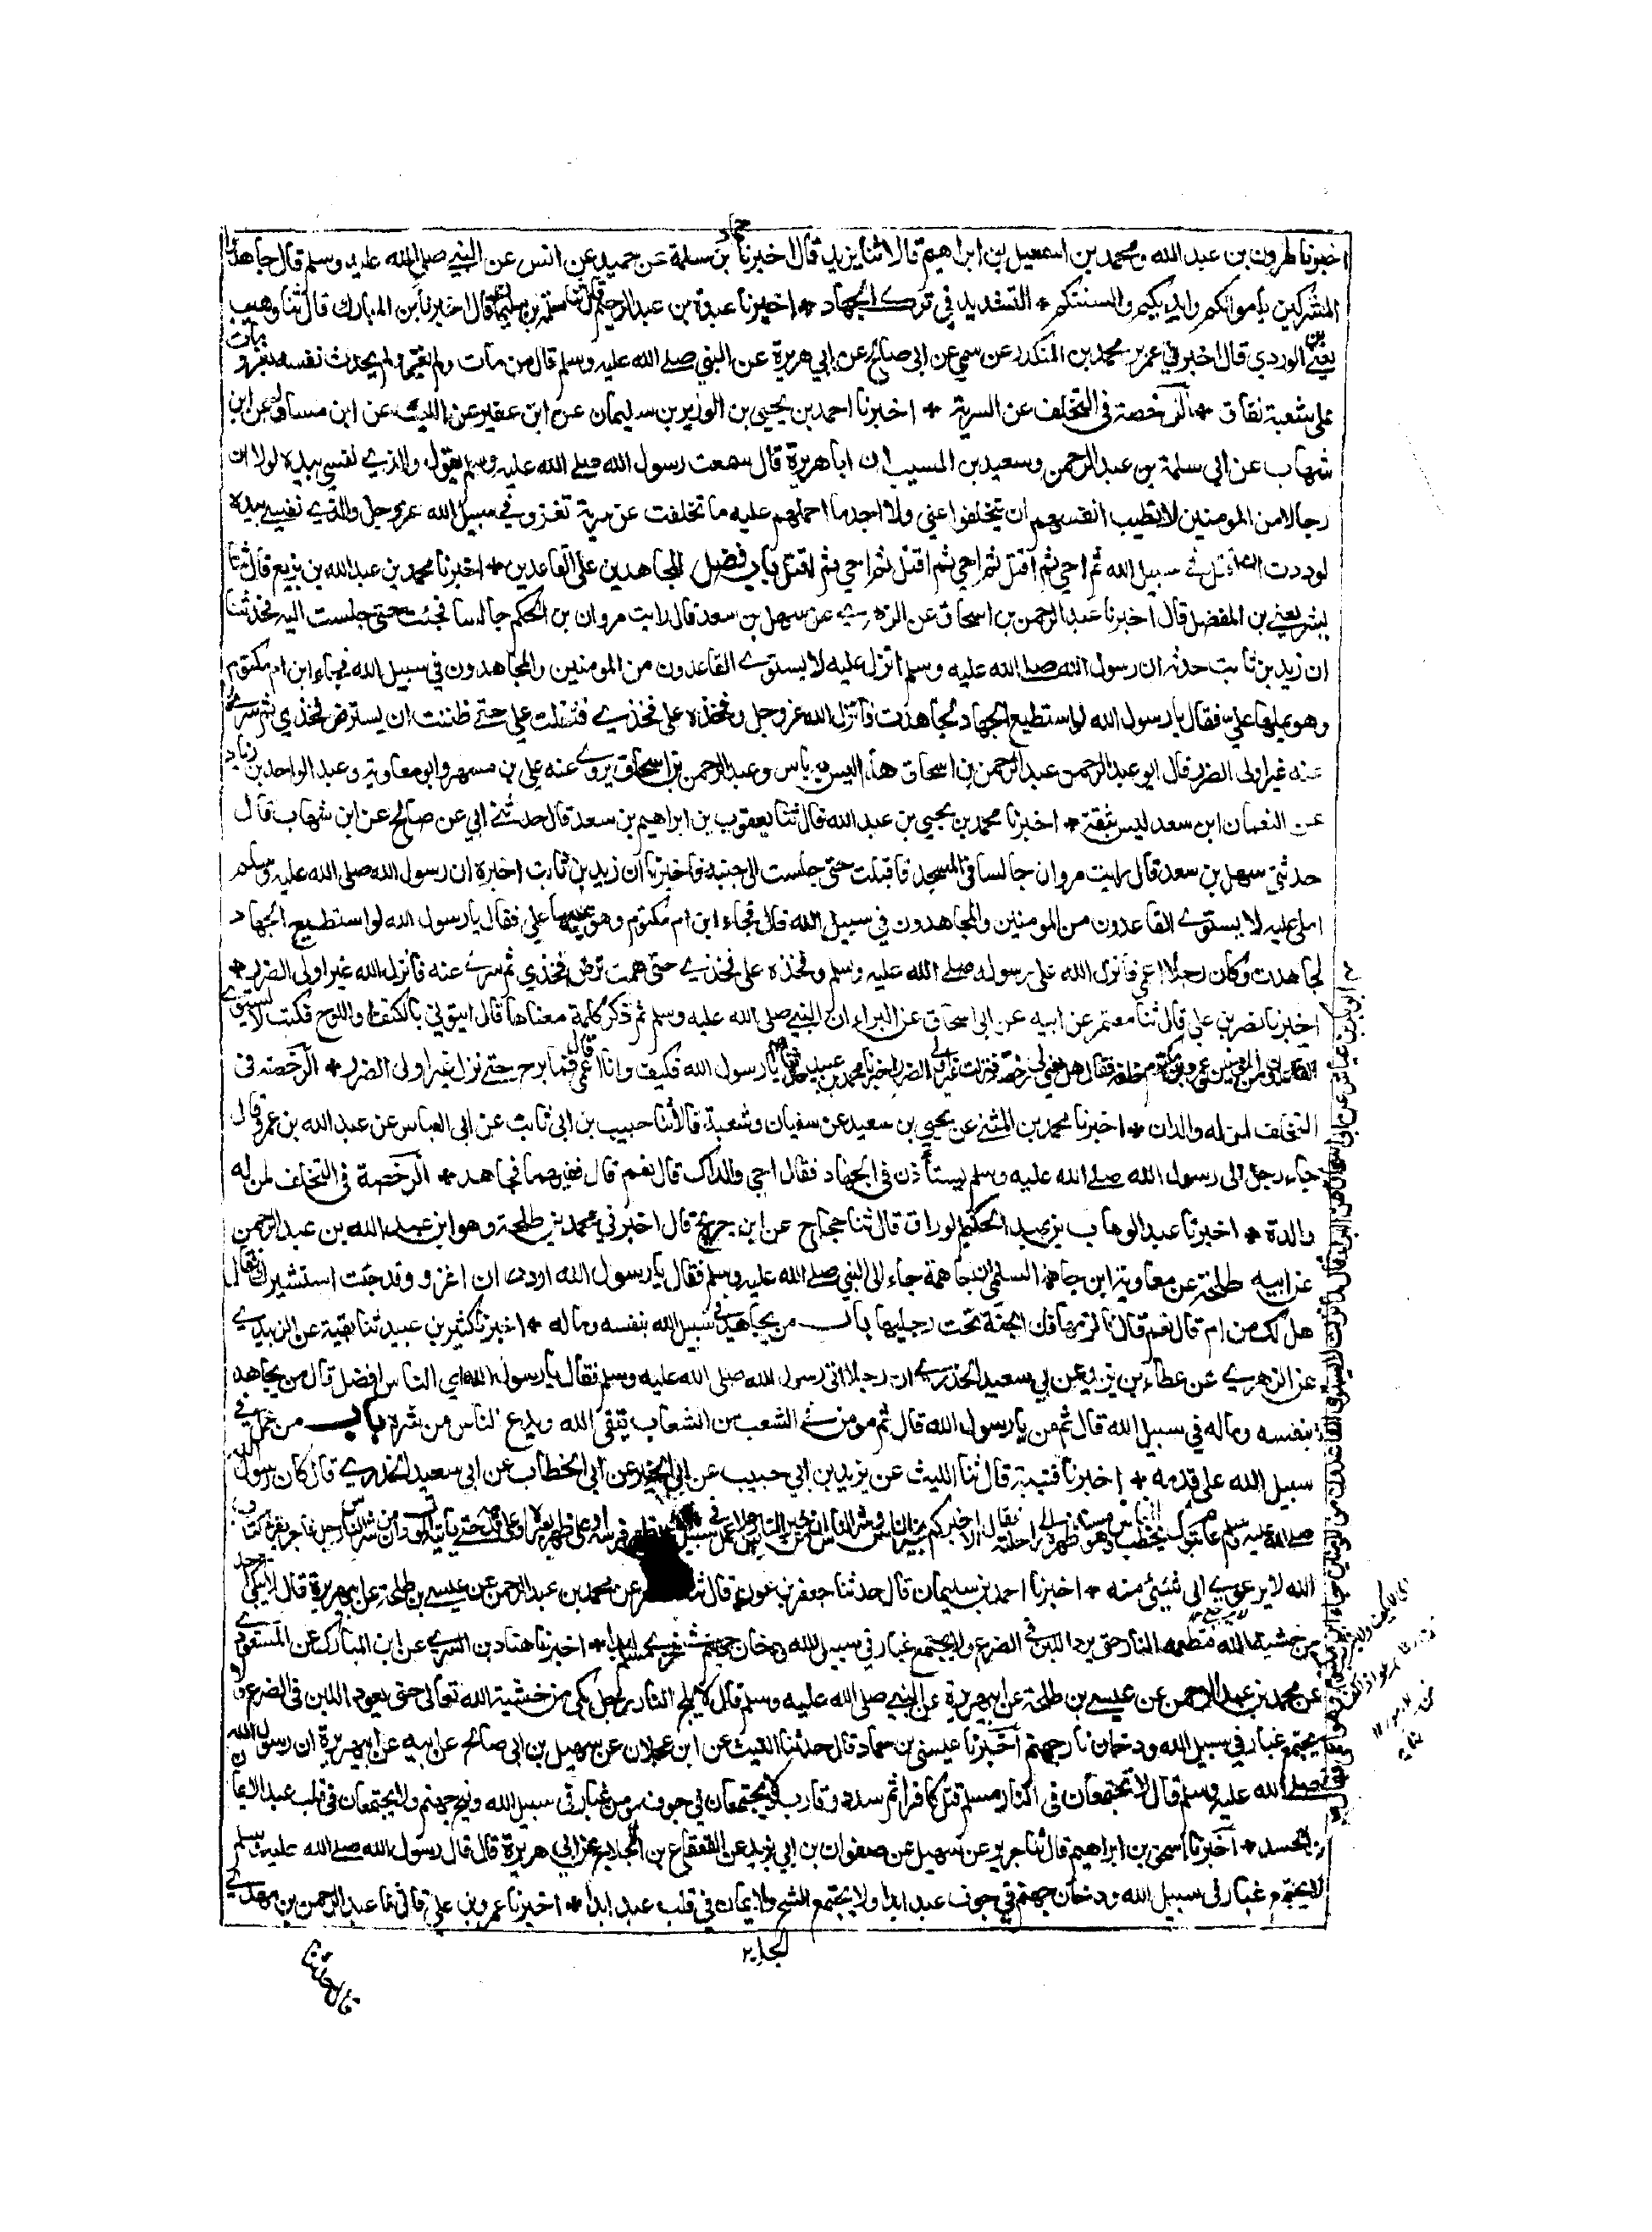 اخبرنا هرون بن عبد الله ومحمد بن اسمعيل بن ابراهيم قالا ثنا يزيد قال اخبرنا حماد بن سلمة عن حميد عن انس عن النبي صلى الله عليه وسلم قال جاهدوا
المشركين باموالكم وايديكم والسنتكم * التشديد في ترك الجهاد * اخبرنا عبدة بن عبد الرحيم قال ثنا سلمة بن سليمان قال اخبرنا ابن المبارك قال ثنا وهيب
يعني بن الوردي قال اخبرني عمر بن محمد بن المنكدر عن سمي عن ابي صالح عن ابي هريرة عن النبي صلى الله عليه وسلم قال من مات ولم يغز ولم يحدث نفسه بغزو مات
على شعبة نفاق * الرخصة في التخلف عن السرية * اخبرنا احمد بن يحيى بن الوزير بن سليمان عن ابن عفير عن الليث عن ابن مسافر عن ابن
شهاب عن ابي سلمة بن عبد الرحمن وسعيد بن المسيب ان ابا هريرة قال سمعت رسول الله صلى الله عليه وسلم يقول والذي نفسي بيده لولا ان
رجالا من المومنين لا تطيب انفسهم ان يتخلفوا عني ولا اجد ما احملهم عليه ما تخلفت عن سرية تغزو في سبيل الله عز وجل والذي نفسي بيده
لوددت اني اقتل في سبيل الله ثم احيي ثم اقتل ثم احيي ثم اقتل ثم احيي ثم اقتل باب فضل المجاهدين على القاعدين * اخبرنا محمد بن عبد الله بن بزيع قال ثنا
بشر يعني بن المفضل قال اخبرنا عبد الرحمن بن اسحاق عن الزهري عن سهل بن سعد قال رايت مروان بن الحكم جالسا فجئت حتى جلست اليه فحدثنا
ان زيد بن ثابت حدثه ان رسول الله صلى الله عليه وسلم انزل عليه لا يستوي القاعدون من المومنين والمجاهدون في سبيل الله فجاء ابن ام مكتوم
وهو يملها علي فقال يا رسول الله لو استطيع الجهاد لجاهدت فانزل الله عز وجل وفخذه على فخذي فثقلت علي حتى ظننت ان يسترض فخذي ثم سري
عنه غير اولى الضرر قال ابو عبد الرحمن عبد الرحمن بن اسحاق هذا ليس به باس وعبد الرحمن بن اسحاق يروي عنه علي بن مسهر وابو معاوية وعبد الواحد بن زياد
عن النعمان ابن سعد ليس بثقة * اخبرنا محمد بن يحيى بن عبد الله قال ثنا يعقوب بن ابراهيم بن سعد قال حدثني ابي عن صالح عن ابن شهاب قال
حدثني سهل بن سعد قال رايت مروان جالسا في المسجد فاقبلت حتى جلست الى جنبه فاخبرنا ان زيد بن ثابت اخبره ان رسول الله صلى الله عليه وسلم
املى عليه لا يستوي القاعدون من المومنين والمجاهدون في سبيل الله قال فجاء ابن ام مكتوم وهو يملها علي فقال يا رسول الله لو استطيع الجهاد
لجاهدت وكان رجلا اعمى فانزل الله على رسوله صلى الله عليه وسلم وفخذه على فخذي حتى همت ترض فخذي ثم سري عنه فانزل الله غير اولى الضرر *
اخبرنا نصر بن علي قال ثنا معتمر عن ابيه عن ابي اسحاق عن البراء ان النبي صلى الله عليه وسلم ثم ذكر كلمة معناها قال ايتوني بالكتف واللوح فكتب لا يستوي
القاعدون من المومنين وعمرو بن ام مكتوم خلفه فقال هل لي رخصة فنزلت غير اولى الضرر اخبرنا محمد بن عبيد قال يا رسول الله فكيف وانا اعمى قال فما برح حتى نزل غير اولى الضرر * الرخصة في
التخلف لمن له والدان * اخبرنا محمد بن المثنى عن يحيى بن سعيد عن سفيان وشعبة قالا ثنا حبيب بن ابي ثابت عن ابي العباس عن عبد الله بن عمرو قال
جاء رجل الى رسول الله صلى الله عليه وسلم يستأذن في الجهاد فقال احي والداك قال نعم قال ففيهما فجاهد * الرخصة في التخلف لمن له
والدة * اخبرنا عبد الوهاب بن عبد الحكيم الوراق قال ثنا حجاج عن ابن جريج قال اخبرني محمد بن طلحة وهو ابن عبد الله بن عبد الرحمن
عن ابيه طلحة عن معاوية ابن جاهمة السلمي ان جاهمة جاء الى النبي صلى الله عليه وسلم فقال يا رسول الله اردت ان اغزو وقد جئت استشيرك فقال
هل لك من ام قال نعم قال فالزمها فان الجنة تحت رجليها باب من يجاهد في سبيل الله بنفسه وماله * اخبرنا كثير بن عبيد ثنا بقية عن الزبيدي
عن الزهري عن عطاء بن يزيد عن ابي سعيد الخدري ان رجلا اتى رسول الله صلى الله عليه وسلم فقال يا رسول الله اي الناس افضل قال من يجاهد
بنفسه وماله في سبيل الله قال ثم من يا رسول الله قال ثم مومن في الشعب من الشعاب يتقي الله ويدع الناس من شره باب من عمل في
سبيل الله على قدمه * اخبرنا قتيبة قال ثنا الليث عن يزيد بن ابي حبيب عن ابي الخير عن ابي الخطاب عن ابي سعيد الخدري قال كان رسول الله
صلى الله عليه وسلم عام تبوك يخطب الناس وهو مسند ظهره الى راحلته فقال الا اخبركم بخير الناس وشر الناس ان من خير الناس رجلا عمل في سبيل الله على ظهر فرسه او على ظهر بعيره او على قدمه حتى ياتيه الموت وان من شر الناس رجل فاجر يقرء كتاب
الله لا يرعوي الى شيئ منه * اخبرنا احمد بن سليمان قال حدثنا جعفر بن عون قال ثنا مسعر عن محمد بن عبد الرحمن عن عيسى بن طلحة عن ابي هريرة قال لا يبكي احد
من خشية الله فتطعمه النار حتى يرد اللبن في الضرع ولا يجتمع غبار في سبيل الله ودخان جهنم في منخري مسلم ابدا * اخبرنا هناد بن السري عن ابن المبارك عن المسعودي
عن محمد بن عبد الرحمن عن عيسى بن طلحة عن ابي هريرة عن النبي صلى الله عليه وسلم قال لا يلج النار رجل بكى من خشية الله تعالى حتى يعود اللبن في الضرع ولا
يجتمع غبار في سبيل الله ودخان نار جهنم اخبرنا عيسى بن حماد قال حدثنا الليث عن ابن عجلان عن سهيل بن ابي صالح عن ابيه عن ابي هريرة ان رسول الله
صلى الله عليه وسلم قال لا تجتمعان في النار مسلم قتل كافرا ثم سدد وقارب ولا يجتمعان في جوف مومن غبار في سبيل الله وفيح جهنم ولا يجتمعان في قلب عبد الايمان
والحسد * اخبرنا اسحق بن ابراهيم قال ثنا جرير عن سهيل عن صفوان بن ابي يزيد عن القعقاع بن اللجلاج عن ابي هريرة قال قال رسول الله صلى الله عليه وسلم
لا يجتمع غبار في سبيل الله ودخان جهنم في جوف عبد ابدا ولا يجتمع الشح والايمان في قلب عبد ابدا * اخبرنا عمرو بن علي قال ثنا عبد الرحمن بن مهدي
قال حدثنا